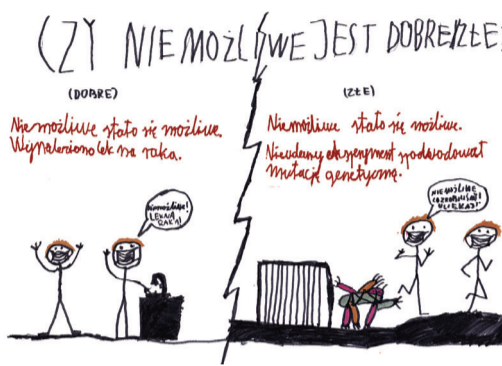 CZY NIEMOŻLIWE JEST DOBRE/ZŁE?
(DOBRE)
Niemożliwe stało się możliwe.
Wynaleziono lek na raka.
Niemożliwe!
LEK NA
RAKA!
(ZŁE)
Niemożliwe stało się możliwe.
Nieudany eksperyment spodwodował
mutację genetyczną.
NIEMOŻLIWE
UCIEKAJ!